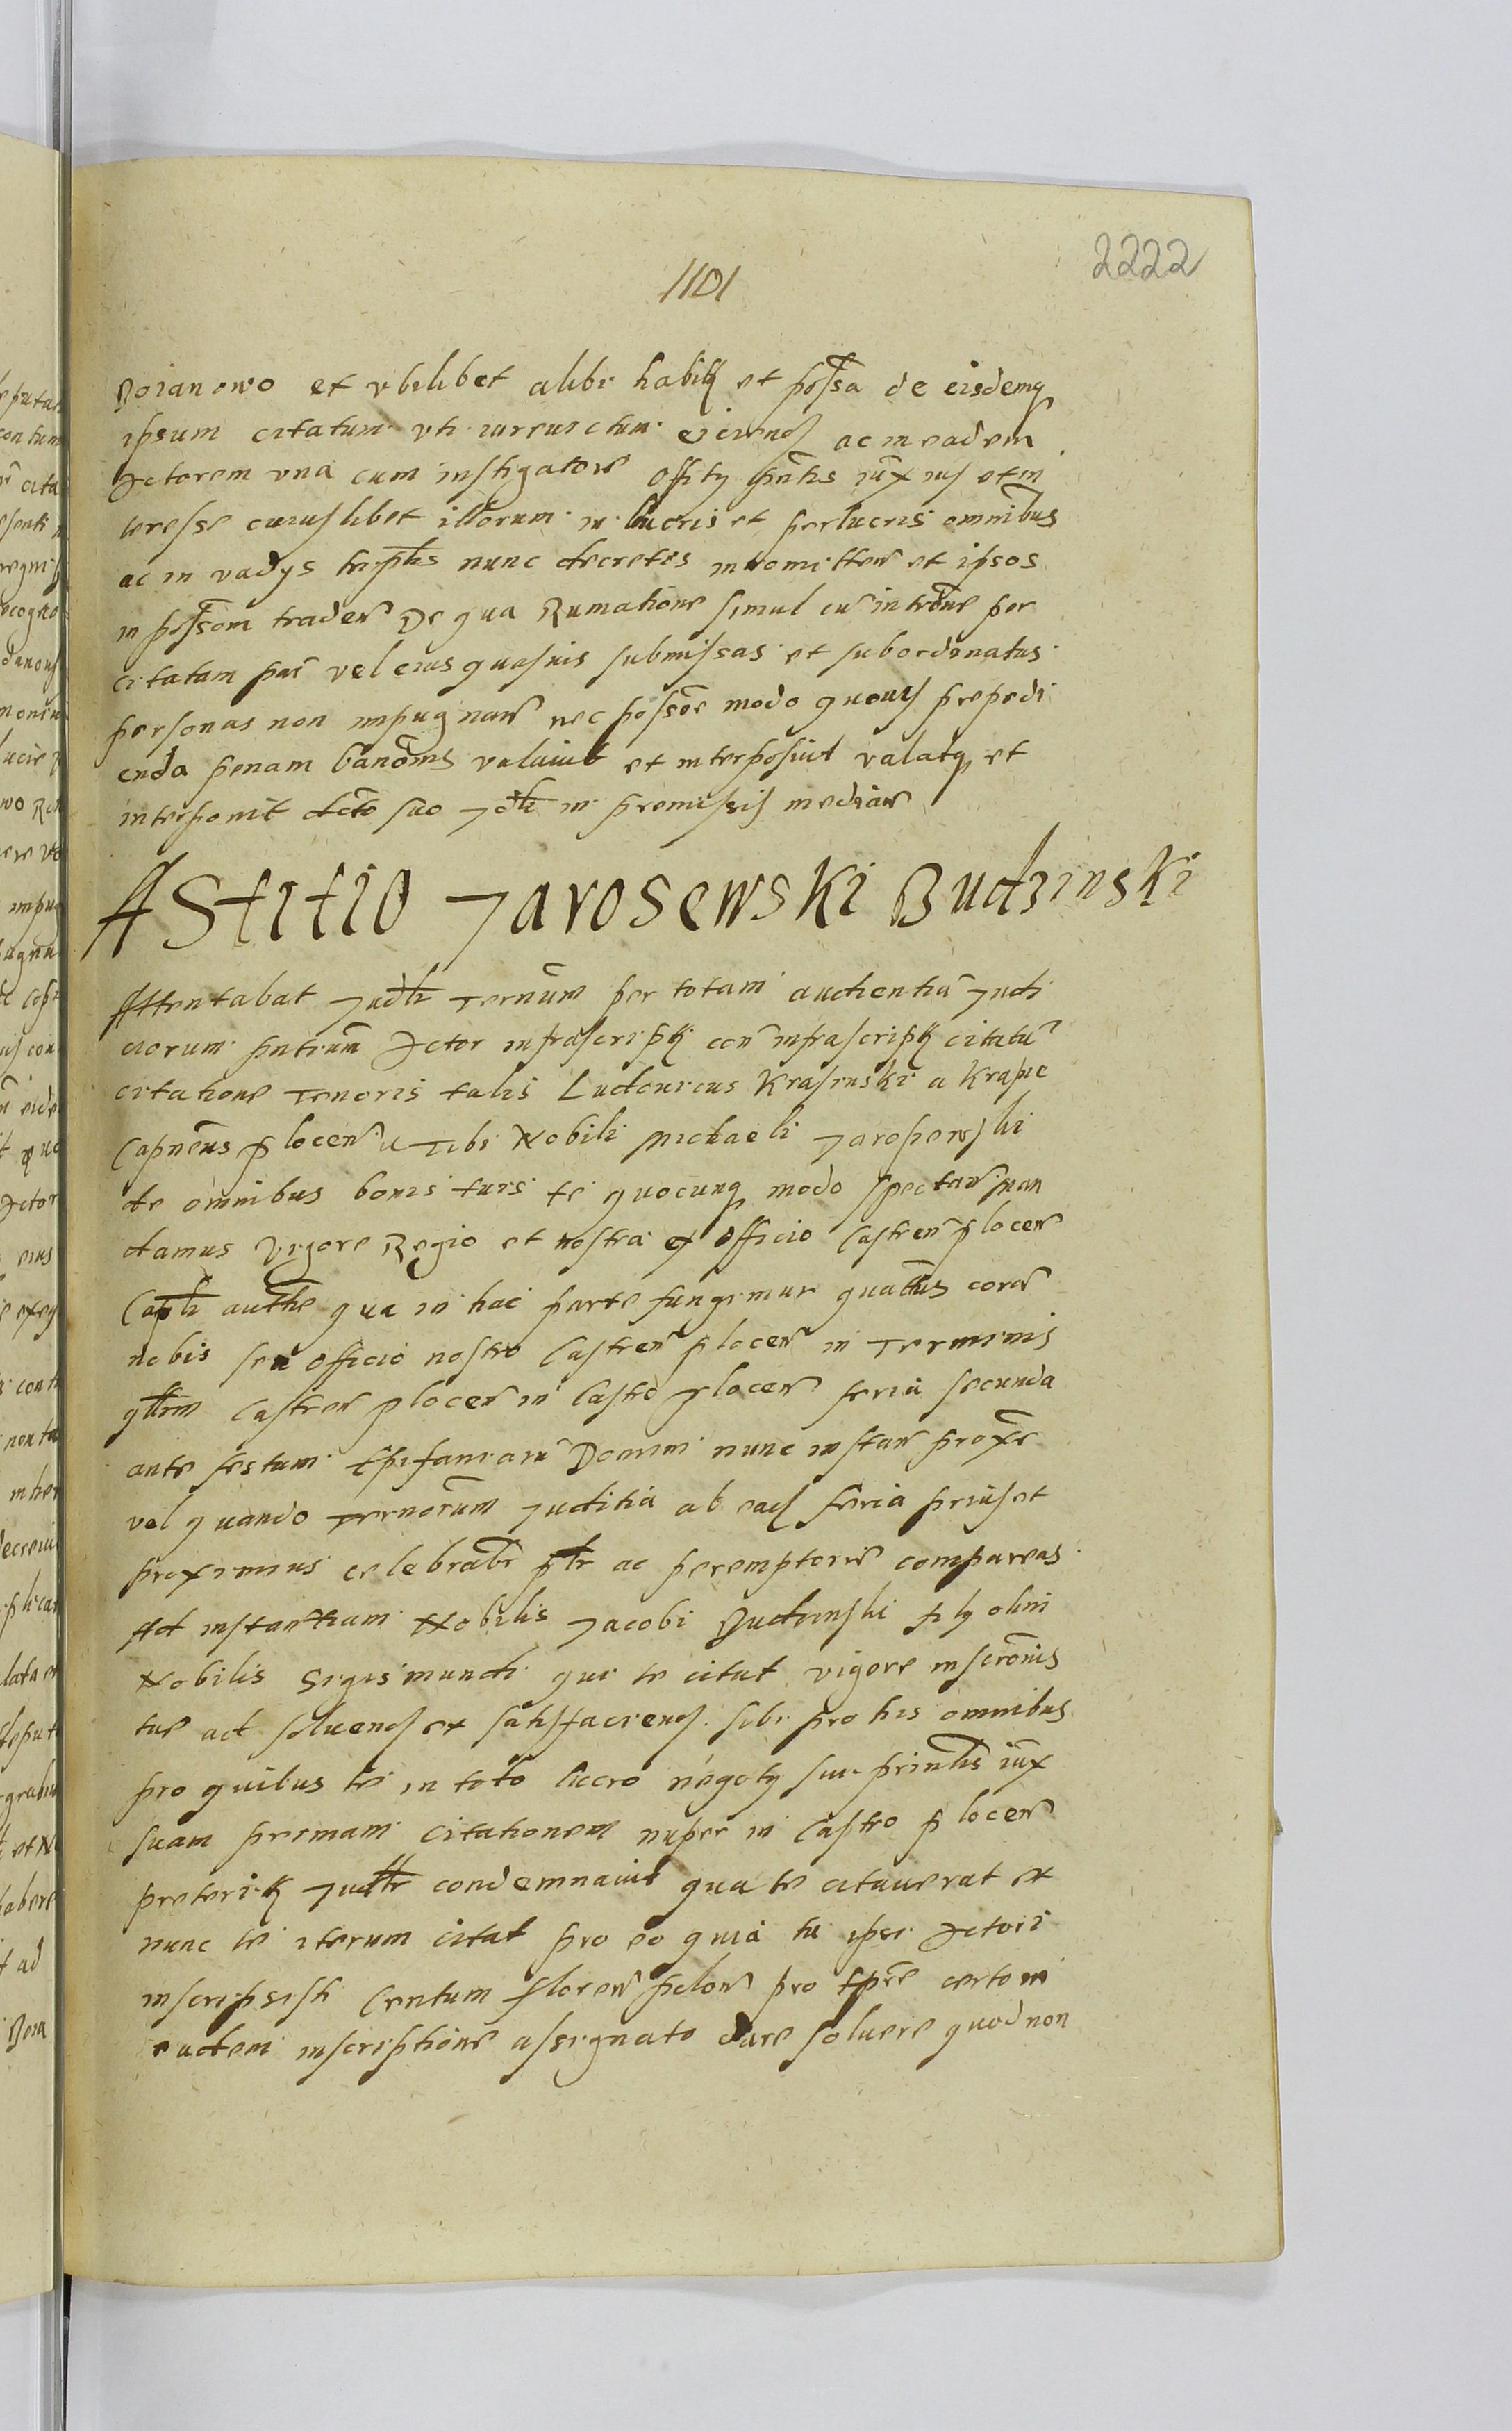 2222
1101
Boianowo et vbilibet alibi habit et possa de eisdemq
ipsum citatum vti iureuictum eiciend ac in eadem
Actorem vna cum instigatore offity pntis iux ius et in
teresse cuiuslibet illorum in lucris et perlucris omnibus
ac in vadys triplis nunc decretis intromitten et ipsos
in possom traden De qua Rumatione simul cu introne per
citatam par vel eius quasuis submissas et subordinatas
personas non impugnan nec possone modo quouis prepedi
enda penam banonis valauit et interposuit valatq et
interponit dcto suo Jdli in premissis median
Astitio Jarosewski Budzinski
Attentabat Judli Ternum per totam audientia Judi
ciorum pntium Actor infrascript con infrascript citatu
citatione Tenoris talis Ludouicus Krasinski a Krasne
Capneus plocen Tibi Nobili Michaeli Jarosewski
de omnibus bonis tuis te quocunq modo spectan man
damus Vigore Regio et nostra ex Officio Castren plocen
Capli authe qua in hac parte fungimur quatus cora
nobis seu officio nostro Castren plocen in Terminis
qllim Castren plocen in Castro plocen feria secunda
ante festum Epifaniaru Domini nunc instan proxe
vel quando Ternorum Juditia ab ead feria prius et
proximius celebrabr plr ac peremptorie compareas
Ad instantiam Nobilis Jacobi Budzinski fily olim
Nobilis Sigismundi qui te citat vigore inscronis
tue ad soluend et satisfaciend sibi pro his omnibus
pro quibus te in toto lucro negoty sui prinlis iux
suam primam citationem nuper in Castro plocen
preterit Judlr condemnauit qua te citauerat et
nunc te iterum citat pro eo quia tu ipsi Actori
inscripsisti Centum floren polon pro tpre certo in
eadem inscriptione assignato dare soluere quod non